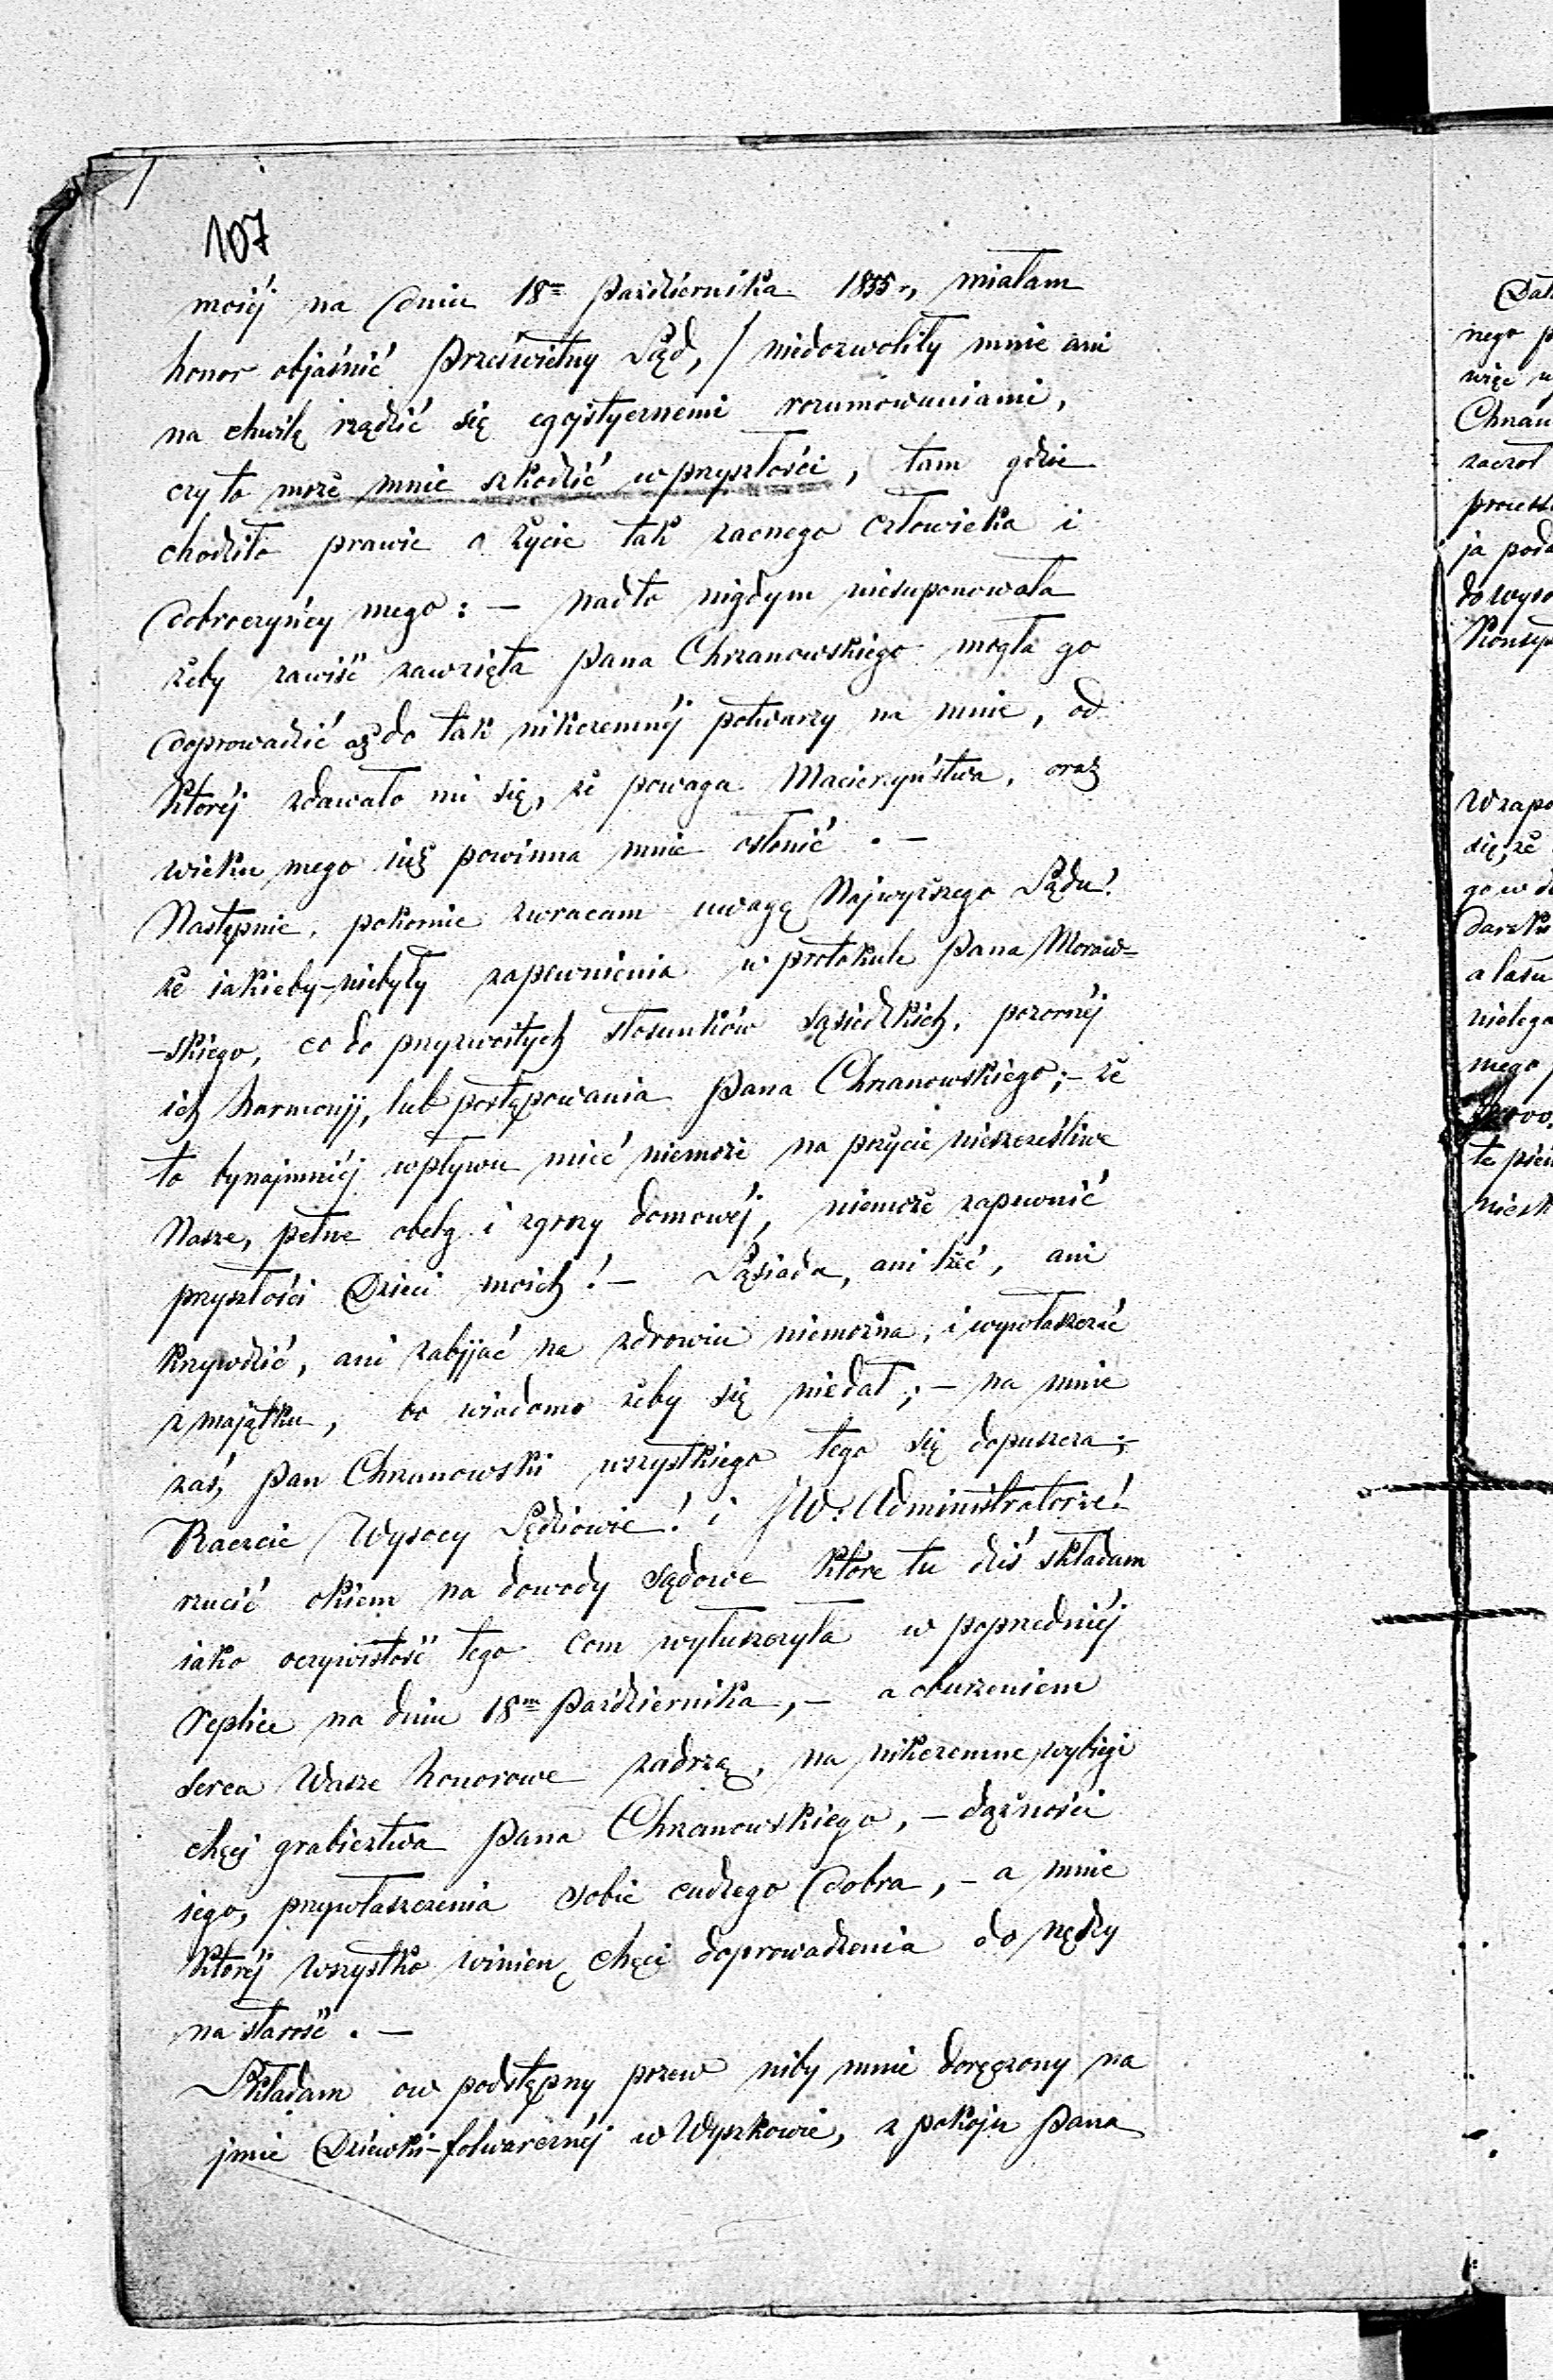 107
moiéj na dniu 18m Października 1855r., miałam
honor objaśnić Prześwietny Sąd, / niedozwoliły mnie ani
na chwilę rządzić się egoistycznemi rozumowaniami,
czy to może mnie szkodzić w przyszłości, tam gdzie
chodziło prawie o życie tak zacnego człowieka i
dobroczyńcy mego: — nadto nigdym niesuponowała
żeby zawiść zawzięta Pana Chrzanowskiego mogła go
doprowadzić aż do tak nikczemnéj potwarzy na mnie, od
któréj zdawało mi się, że powaga Macierzyństwa, oraz
wieku mego iuż powinna mnie osłonić. —
Następnie, pokornie zwracam uwagę Najwyższego Sądu!
że iakieby-niebyły zapewnienia w protokule Pana Moraw-
-skiego, co do przyzwoitych stosunków sąsiedzkich, pozornéj
ich harmonji, lub postępowania Pana Chrzanowskiego; — że
to bynajmniéj wpływu mieć niemoże na pożycie nieszczęśliwe
Nasze, pełne obelg i zgrozy domowéj, niemoże zapewnić
przyszłości Dzieci moich! — Sąsiada, ani lżéć, ani
krzywdzić, ani zabijać na zdrowiu niemożna, i wywłaszczać
z majątku, bo wiadomo żeby się niedał; — na mnie
zaś, Pan Chrzanowski wszystkiego tego się dopuszcza; —
Raczcie Wysocy Sędziowie! i JW. Administratorze!
rzucić okiem na dowody sądowe które tu dziś składam
iako oczywistość tego com wyłuszczyła w poprzedniéj
replice na dniu 18m Października, — a oburzeniem
serca Wasze honorowe zadrżą, na nikczemne wybiegi
chęci grabieztwa Pana Chrzanowskiego, — dążności
iego, przywłaszczenia sobie cudzego dobra, — a mnie
któréj wszystko winien, chęci doprowadzenia do nędzy
na starość. —
Składam ów podstępny pozew niby mnie doręczony na
jmie Dziewki-folwarcznéj w Wyszkowie, z pokoju Pana
nego
Chrzan
ja poda
do wyso
się, że
go w
a lasu
mego